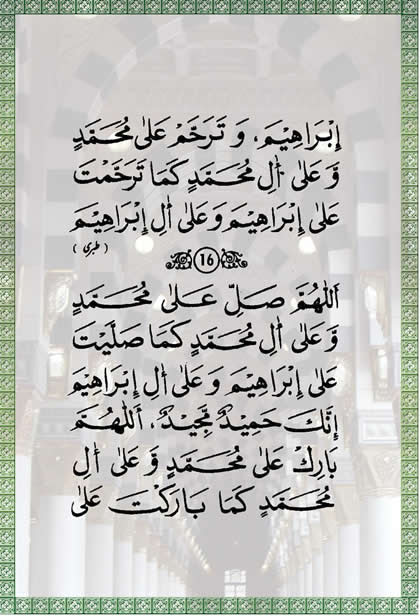 إِبْرَاهِيْمَ، وَ تَرَحَّمْ عَلىٰ مُحَمَّدٍ
وَّ عَلىٰ اٰلِ مُحَمَّدٍ كَمَا تَرَحَّمْتَ
عَلىٰ إِبْرَاهِيْمَ وَ عَلىٰ اٰلِ إِبْرَاهِيْمَ
(طبری)
16
اَللّٰهُمَّ صَلِّ عَلىٰ مُحَمَّدٍ
وَّ عَلىٰ اٰلِ مُحَمَّدٍ كَمَا صَلَّيْتَ
عَلىٰ إِبْرَاهِيْمَ وَ عَلىٰ اٰلِ إِبْرَاهِيْمَ
إِنَّكَ حَمِيْدٌ مَّجِيْدٌ، اَللّٰهُمَّ
بَارِكْ عَلىٰ مُحَمَّدٍ وَّ عَلىٰ اٰلِ
مُحَمَّدٍ كَمَا بَارَكْتَ عَلىٰ